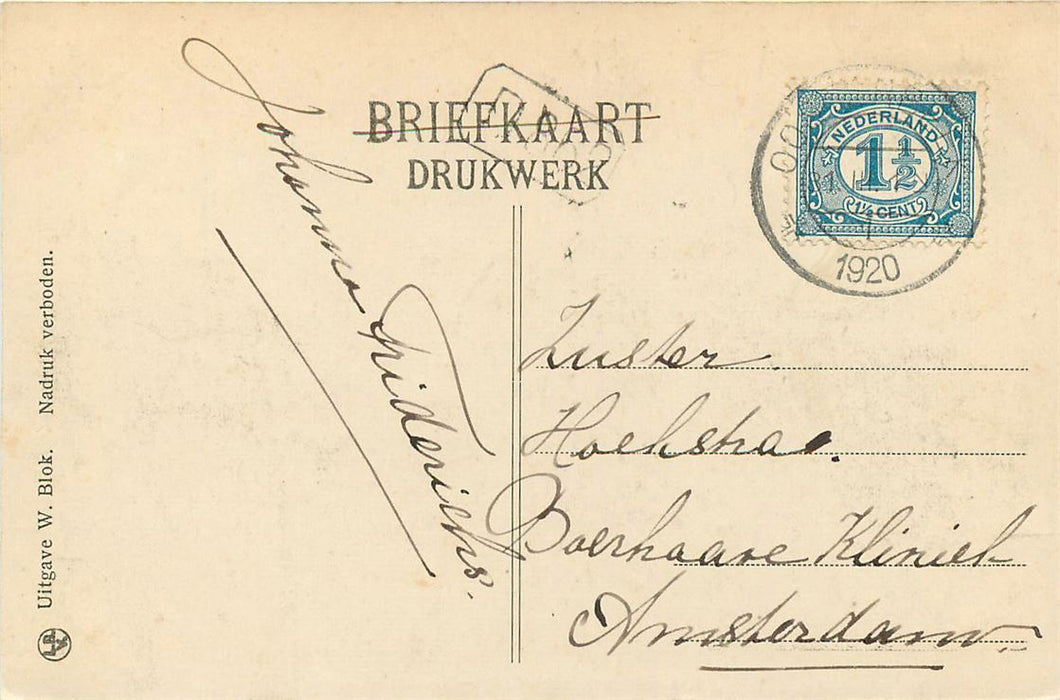 BRIEFKAART
DRUKWERK
NEDERLAND
1 1/2
1½ CENT
1920
Johanna
Zuster.
Hoekstra.
Boerhaave Kliniek
Amsterdam.
Uitgave W. Blok. Nadruk verboden.